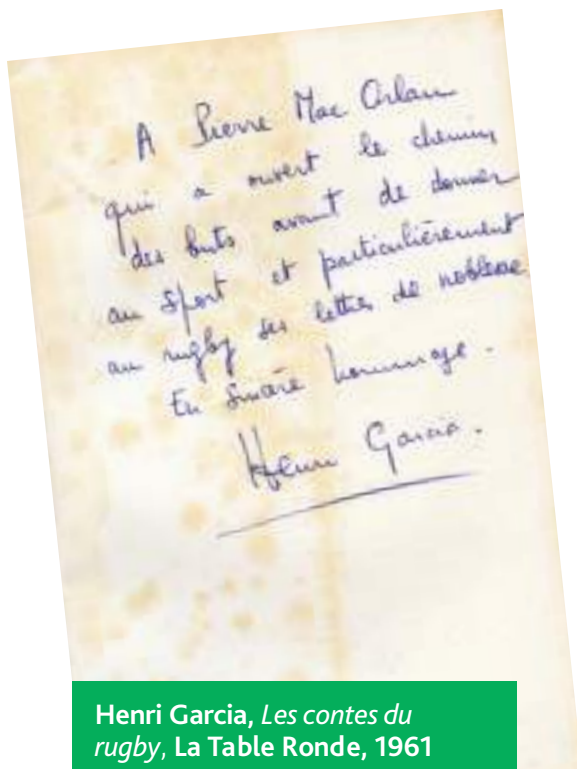 A Pierre Mac Orlan
qui a ouvert le chemin
des buts avant de donner
au sport et particulièrement
au rugby ses lettres de noblesse
En sincère hommage.
Henri Garcia.
Henri Garcia, Les contes du
rugby, La Table Ronde, 1961